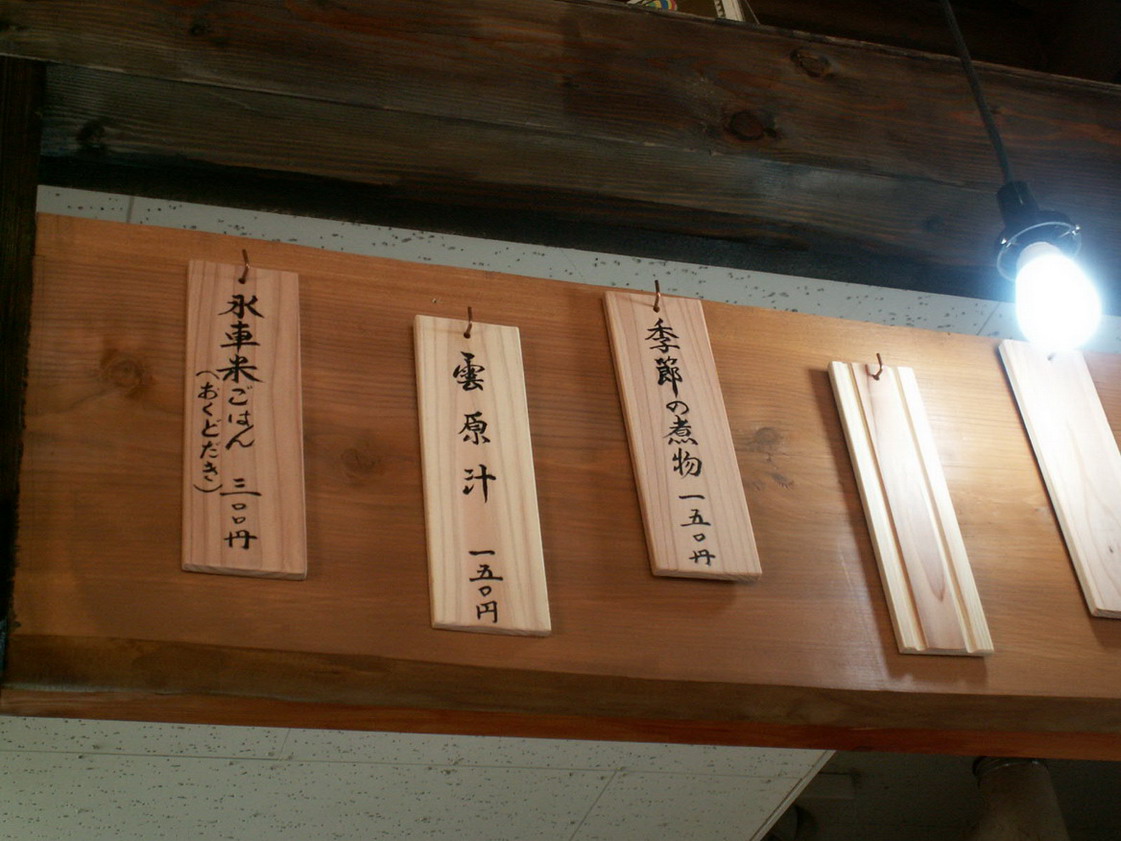 水車米ごはん 三〇〇円
(おくどだき)
雲原汁 一五〇円
季節の煮物 一五〇円